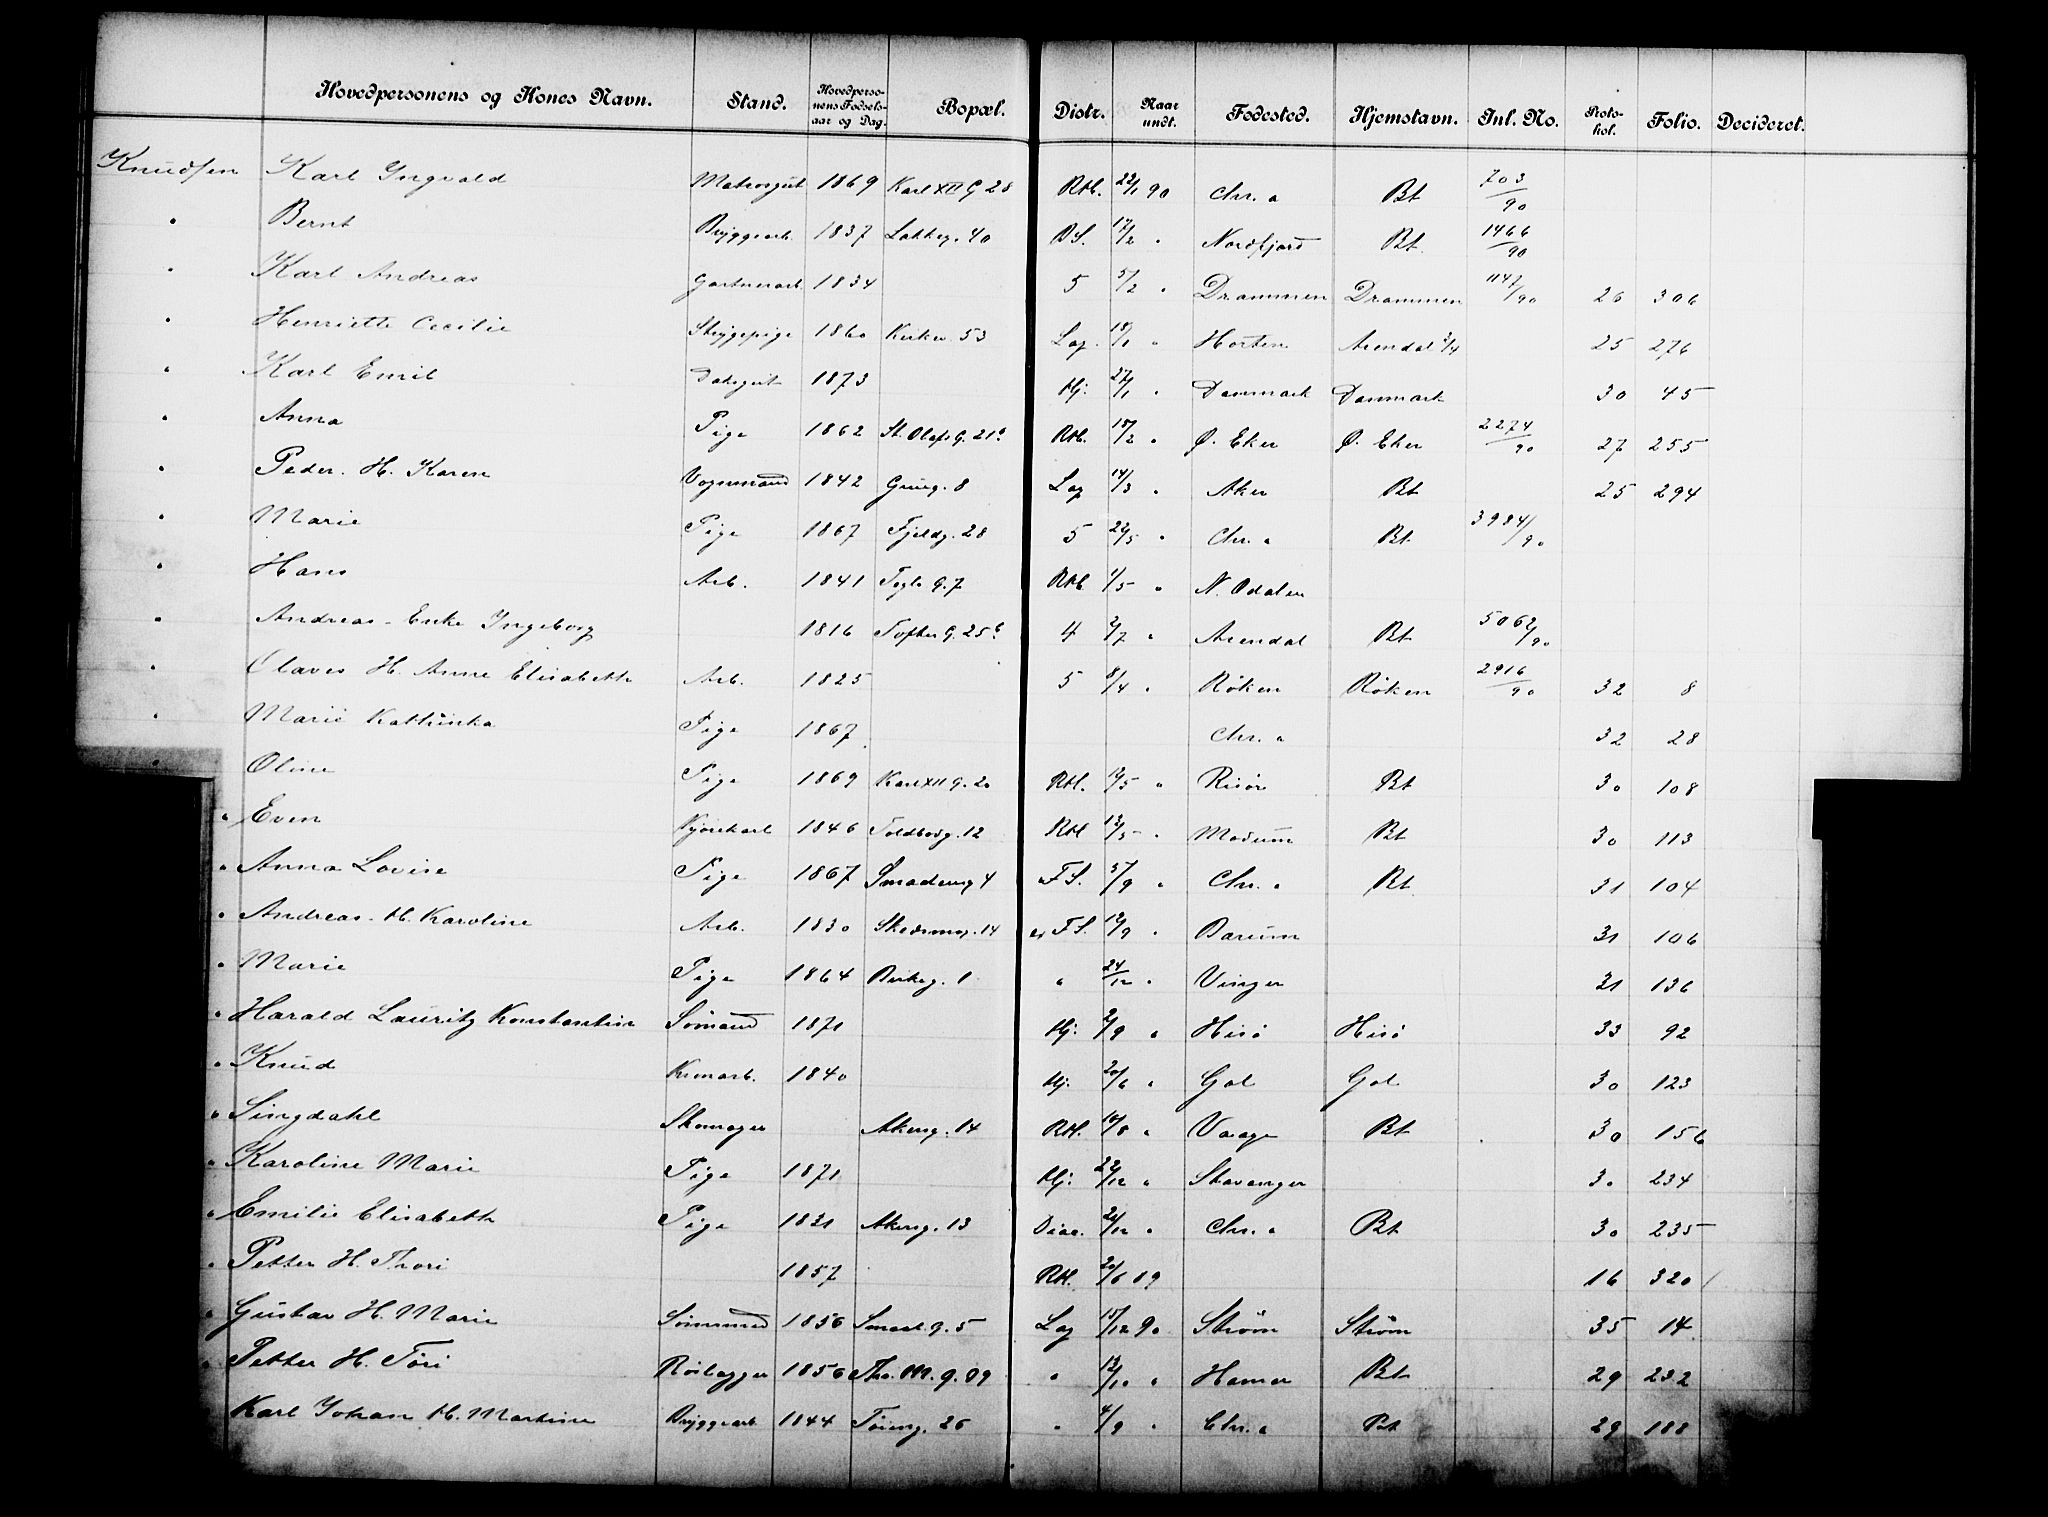 Hovedpersonens og Kones Navn. Stand. Hovedpersonens Fødselsaar og Dag. Bopæl. Distr. Naar undt. Fødested. Hjemstavn. Inl. No. Protokol. Folio. Decideret.
Knudsen Karl Ingvald Matrosgut 1869 Karl XII G 28 Rth. 22/1 90 Chr. a Bt 703/90
" Bernt Bryggearb. 1837 Lakkeg. 40 DS. 17/2 " Nordfjord Bt 1466/90
" Karl Andreas Gartnerarb. 1834 5 5/2 " Drammen Drammen 1147/90 26 306
" Henriette Cecilie Strygepige 1860 Kirkev. 53 Lag. 18/1 " Horten Arendal 3/4 25 276
" Karl Emil Daksgut 1873 Hj. 27/1 " Danmark Danmark 30 45
" Anna Pige 1862 St. Olafs G. 21 Rth. 18/2 " Ø. Eker Ø. Eker 2274/90 27 255
" Peder. H. Karen Vognmand 1842 Grüg. 8 Lag 14/3 " Aker Bt 25 294
" Marie Pige 1867 Fjeldg. 28 5 22/5 " Chr. a Bt 3984/90
" Hans Arb. 1841 Tegls G. 7 Rth 1/5 " N. Odalen
" Andreas - Enke Ingeborg 1816 Toftes G. 25b 4 2/7 " Arendal Bt 5062/90
Olaves H. Anne Elisabeth Arb. 1825 5 8/4 " Røken Røken 2916/90 32 8
" Marie Kathinka Pige 1867 Chr. a 32 28
" Oline Pige 1869 Karl XII G. 20 Rth. 12/5 " Risør Bt 30 108
" Even Kjørekarl 1846 Toldbodg. 12 Rth 12/5 " Modum Bt 30 113
" Anna Lovise Pige 1867 Smedeng 4 FS. 5/9 " Chr. a Bt 31 104
" Andreas. H. Karoline Arb. 1830 Skedsmog. 14 FS. 12/9 " Bærum 31 106
" Marie Pige 1864 Birkeg. 1 " 24/12 " Vinger 31 136
" Harald Lauritz Konstantin Sømand 1871 Hj. 2/9 " Hisø Hisø 33 92
" Knud 1840 Hj. 20/6 " Gol Gol 30 123
" Singdahl Skomager Akersg. 14 Rth. 18/8 " Vaage Bt 30 156
" Karoline Marie Pige 1871 Hj. 22/12 " Stavanger 30 234
" Emilie Elisabeth Pige 1831 Akersg. 13 Diac. 21/12 " Chr. a Bt 30 235
" Petter H. Thori 1857 Rth. 20/6 89 16 320
" Gustav H. Marie Sømand 1856 Smalg. 5 Lag 15/12 90 Strøm Strøm 35 14
" Petter H. Tori Rørlegger 1856 Th. M. g. 89 " 13/10 " Hamar Bt 29 232
Karl Johan H. Martine Bryggearb 1844 Tøieng. 26 " 4/9 " Chr. a Bt 29 188